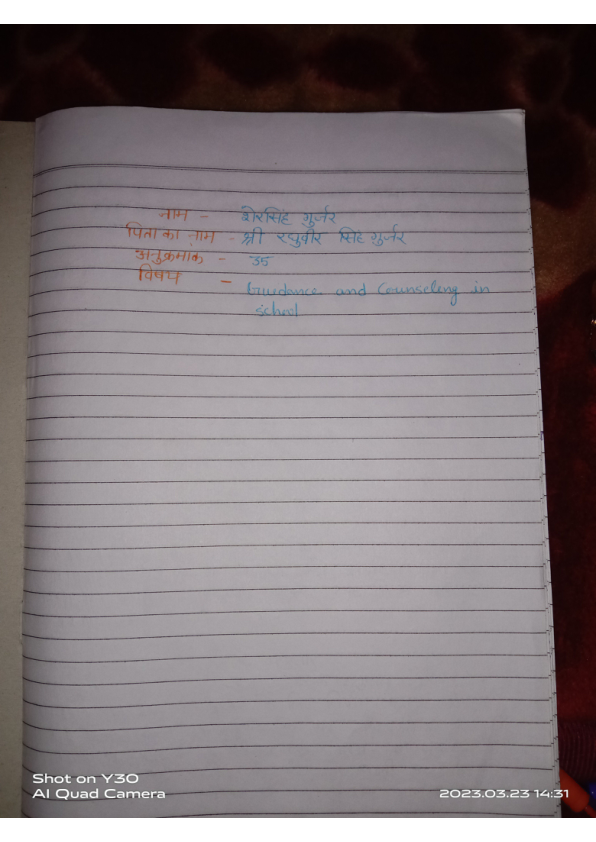 नाम - शेरसिंह गुर्जर
पिता का नाम - श्री रघुवीर सिंह गुर्जर
अनुक्रमांक - 35
विषय - Guudance and Counseleng in
school
Shot on Y30
AI Quad Camera
2023.03.23 14:31